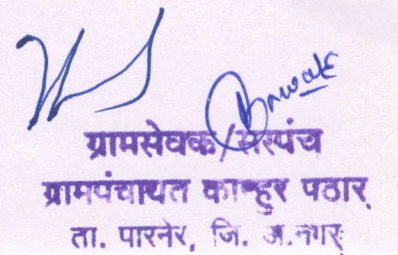 ग्रामसेवक/सरपंच
ग्रामपंचायत कान्हुर पठार,
ता. पारनेर, जि. अ.नगर